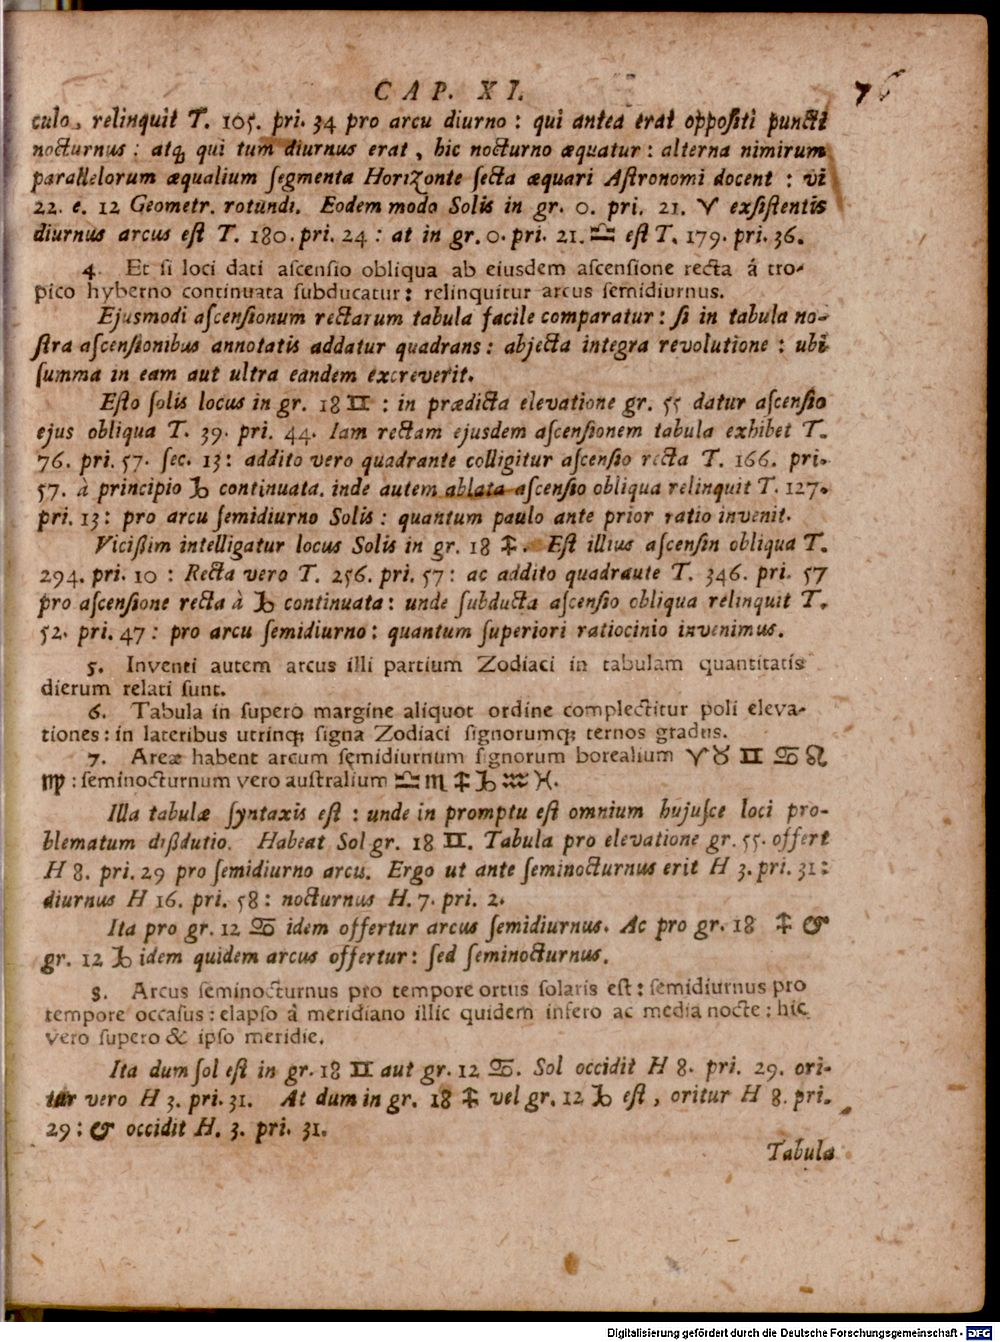 CAP. XI. 76
culo, relinquit T. 105. pri. 34 pro arcu diurno : qui antea erat oppositi puncti
nocturnus : atq; qui tum diurnus erat , hic nocturno æquatur : alterna nimirum
parallelorum æqualium segmenta Horizonte secta æquari Astronomi docent : vi
22. e. 12 Geometr. rotundi. Eodem modo Solis in gr. 0. pri. 21. ♈ exsistentis
diurnus arcus est T. 180. pri. 24 : at in gr. 0. pri. 21. ♎ est T. 179. pri. 36.
4. Et si loci dati ascensio obliqua ab ejusdem ascensione recta á tro-
pico hyberno continuata subducatur : relinquitur arcus semidiurnus.
Ejusmodi ascensionum rectarum tabula facile comparatur : si in tabula no-
stra ascensionibus annotatis addatur quadrans : abjecta integra revolutione : ubi
summa in eam aut ultra eandem excreverit.
Esto solis locus in gr. 18 ♊ : in prædicta elevatione gr. 55 datur ascensio
ejus obliqua T. 39. pri. 44. Iam rectam ejusdem ascensionem tabula exhibet T.
76. pri. 57. sec. 13 : addito vero quadrante colligitur ascensio recta T. 166. pri.
57. à principio ♑ continuata. inde autem ablata ascensio obliqua relinquit T. 127.
pri. 13 : pro arcu semidiurno Solis : quantum paulo ante prior ratio invenit.
Vicißim intelligatur locus Solis in gr. 18 ♐. Est illius ascensin obliqua T.
294. pri. 10 : Recta vero T. 256. pri. 57 : ac addito quadraute T. 346. pri. 57
pro ascensione recta à ♑ continuata : unde subducta ascensio obliqua relinquit T.
52. pri. 47 : pro arcu semidiurno : quantum superiori ratiocinio invenimus.
5. Inventi autem arcus illi partium Zodiaci in tabulam quantitatis
dierum relati sunt.
6. Tabula in supero margine aliquot ordine complectitur poli eleva-
tiones : in lateribus utrinq; signa Zodiaci signorumq; ternos gradus.
7. Areæ habent arcum semidiurnum signorum borealium ♈ ♉ ♊ ♋ ♌
♍ : seminocturnum vero australium ♎ ♏ ♐ ♑ ♒ ♓.
Illa tabulæ syntaxis est : unde in promptu est omnium hujusce loci pro-
blematum dißdutio. Habeat Sol gr. 18 ♊. Tabula pro elevatione gr. 55. offert
H 8. pri. 29 pro semidiurno arcu. Ergo ut ante seminocturnus erit H 3. pri. 31 :
diurnus H 16. pri. 58 : nocturnus H. 7. pri. 2.
Ita pro gr. 12 ♋ idem offertur arcus semidiurnus. Ac pro gr. 18 ♐ &
gr. 12 ♑ idem quidem arcus offertur : sed seminocturnus.
8. Arcus seminocturnus pro tempore ortus solaris est : semidiurnus pro
tempore occasus : elapso á meridiano illic quidem infero ac media nocte : hic
vero supero & ipso meridie.
Ita dum sol est in gr. 18 ♊ aut gr. 12 ♋. Sol occidit H 8. pri. 29. ori-
tur vero H 3. pri. 31. At dum in gr. 18 ♐ vel gr. 12 ♑ est , oritur H 8. pri.
29 : & occidit H. 3. pri. 31.
Tabula
Digitalisierung gefördert durch die Deutsche Forschungsgemeinschaft - DFG